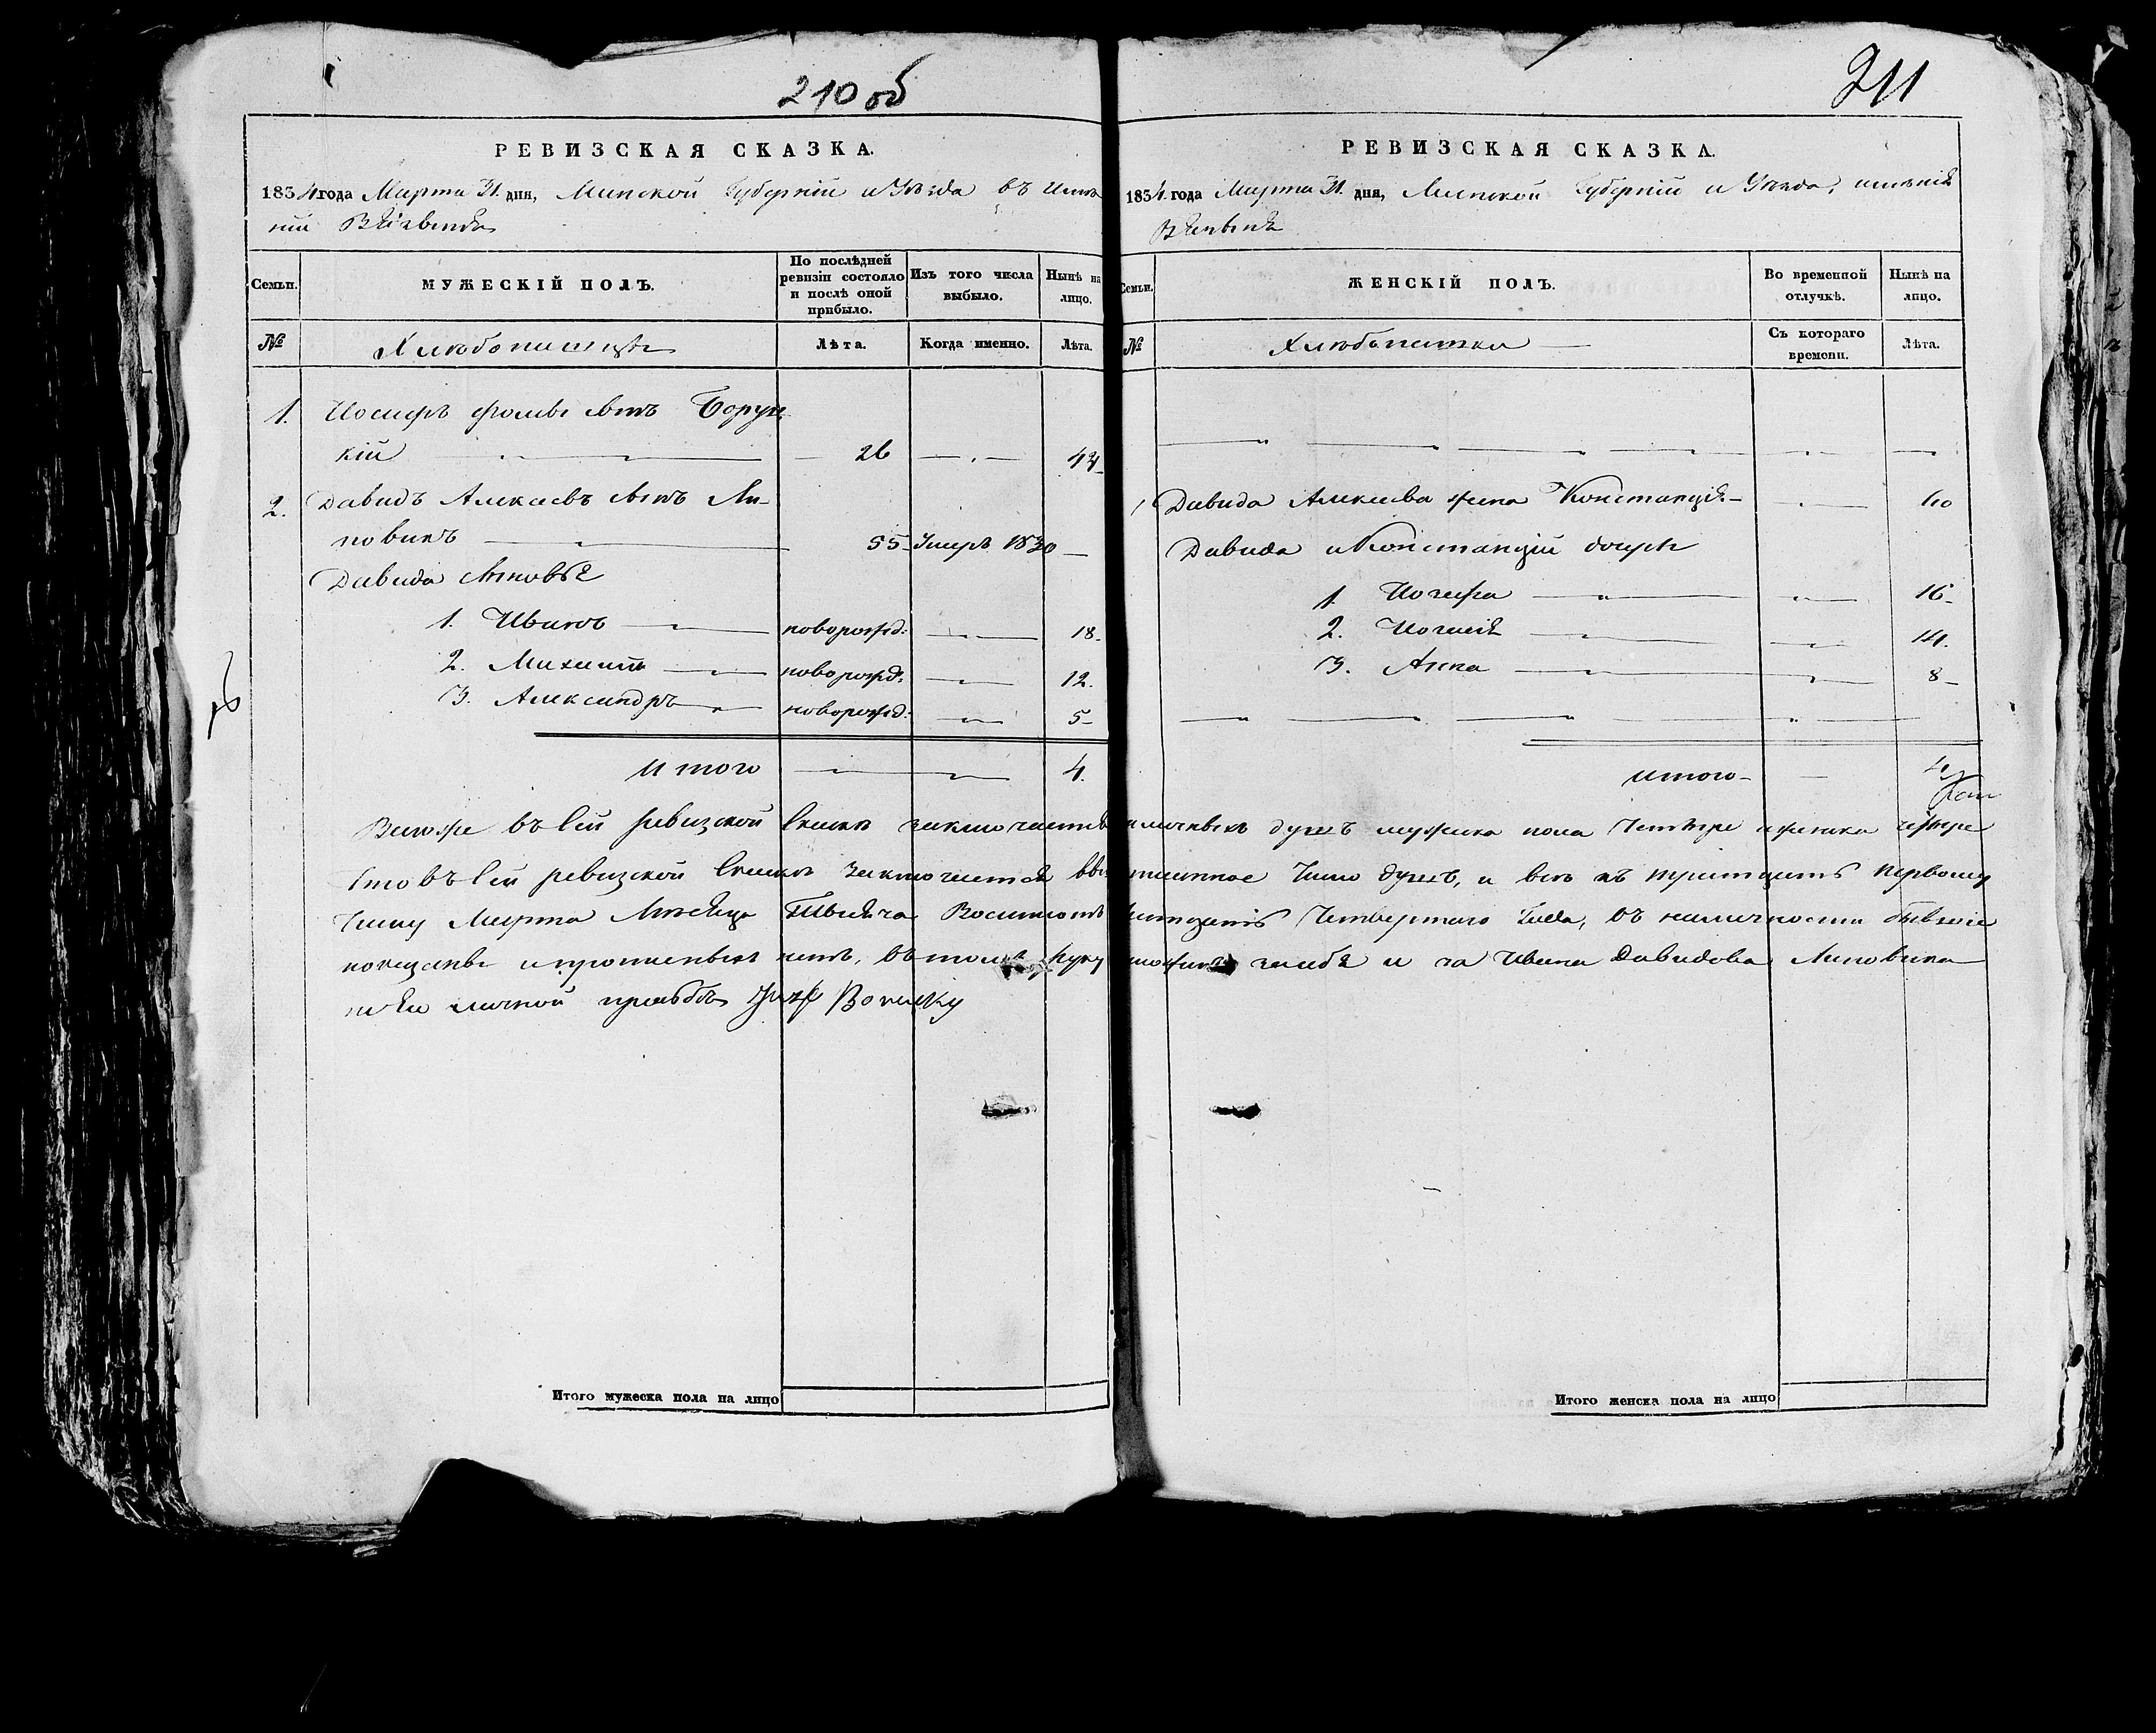 210 об
РЕВИЗСКАЯ СКАЗКА.
1834 года Марта 31 дня, Минской Губерніи и Уѣзда въ имѣ
ніи
Семьи.
МУЖЕСКІЙ ПОЛЪ.
По послѣдней ревизіи состояло и послѣ оной прибыло.
Изъ того числа выбыло.
Нынѣ на лицо.
№
Хлѣбопашецъ
Лѣта.
Когда именно.
Лѣта.
1. Іосифъ сынъ Боруц
кій 26
2. Давидъ Алексѣевъ сынъ Ли-
повикъ 55 Умеръ 1830
Давида сыновья
1. Иванъ новорожд: 18
2. Михаилъ новорожд: 12.
3. Александръ новорожд: 5
Итого 4.
211
РЕВИЗСКАЯ СКАЗКА.
1834 года Марта 31 дня, Минской Губерніи и Уѣзда, имѣнія
Семьи.
ЖЕНСКІЙ ПОЛЪ.
Во временной отлучкѣ.
Нынѣ на лицо.
№
Хлѣбопашка
Съ котораго времени.
Лѣта.
Давида Алексѣева жена Констанція
Давида и Констанціи дочери
1. Іозефа 16
2. 14.
3. Анна 8
итого 4
въ сей ревизской сказкѣ душъ мужска пола четыре и женска четыре
что въ сей ревизской сказкѣ заключается число душъ, и всѣ къ тритцать первому
числу Марта Мѣсяца Тысяча Восимсотъ тритцать Четвертаго Года, въ наличности бывшіе
показаны и прописныхъ нѣтъ, въ томъ и за Ивана Давидова Липовика
по личной прозбѣ Józef Borucky
Итого мужеска пола на лицо
Итого женска пола на лицо